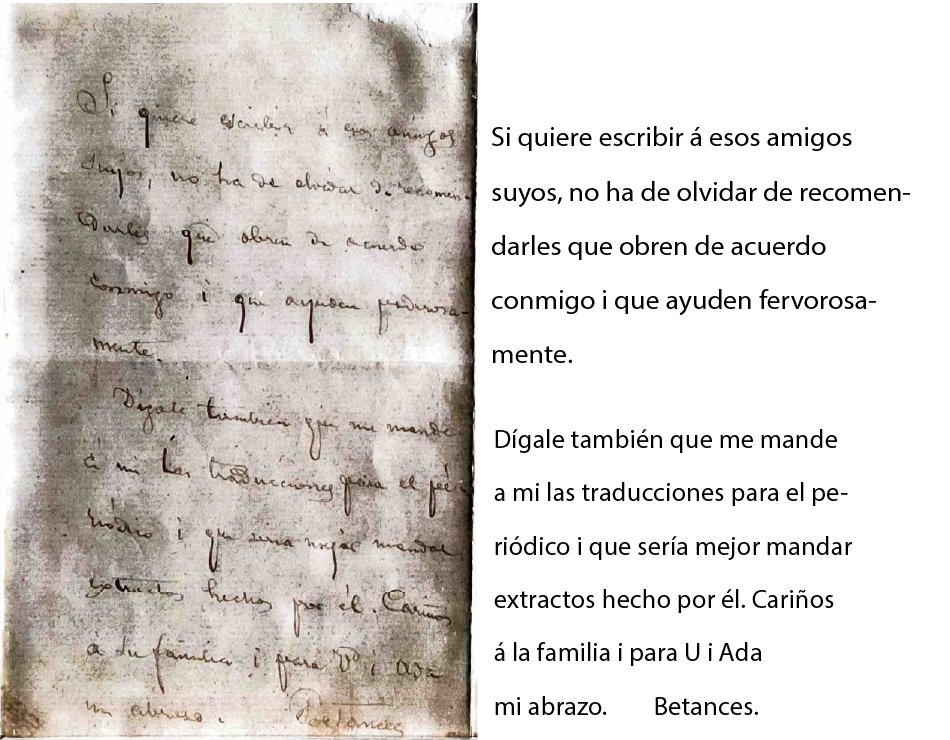 Si quiere escribir á esos amigos
suyos, no ha de olvidar de recomen-
darles que obren de acuerdo
conmigo i que ayuden poderosa-
mente.
Dígale también que me mande
á mi las traducciones para el pe-
riódico i que seria mejor mandar
extractos hechos por él. Cariños
á su familia i para V i Ada
un abrazo. Betances
Si quiere escribir á esos amigos
suyos, no ha de olvidar de recomen-
darles que obren de acuerdo
conmigo i que ayuden fervorosa-
mente.
Dígale también que me mande
a mi las traducciones para el pe-
riódico i que sería mejor mandar
extractos hecho por él. Cariños
á la familia i para U i Ada
mi abrazo. Betances.